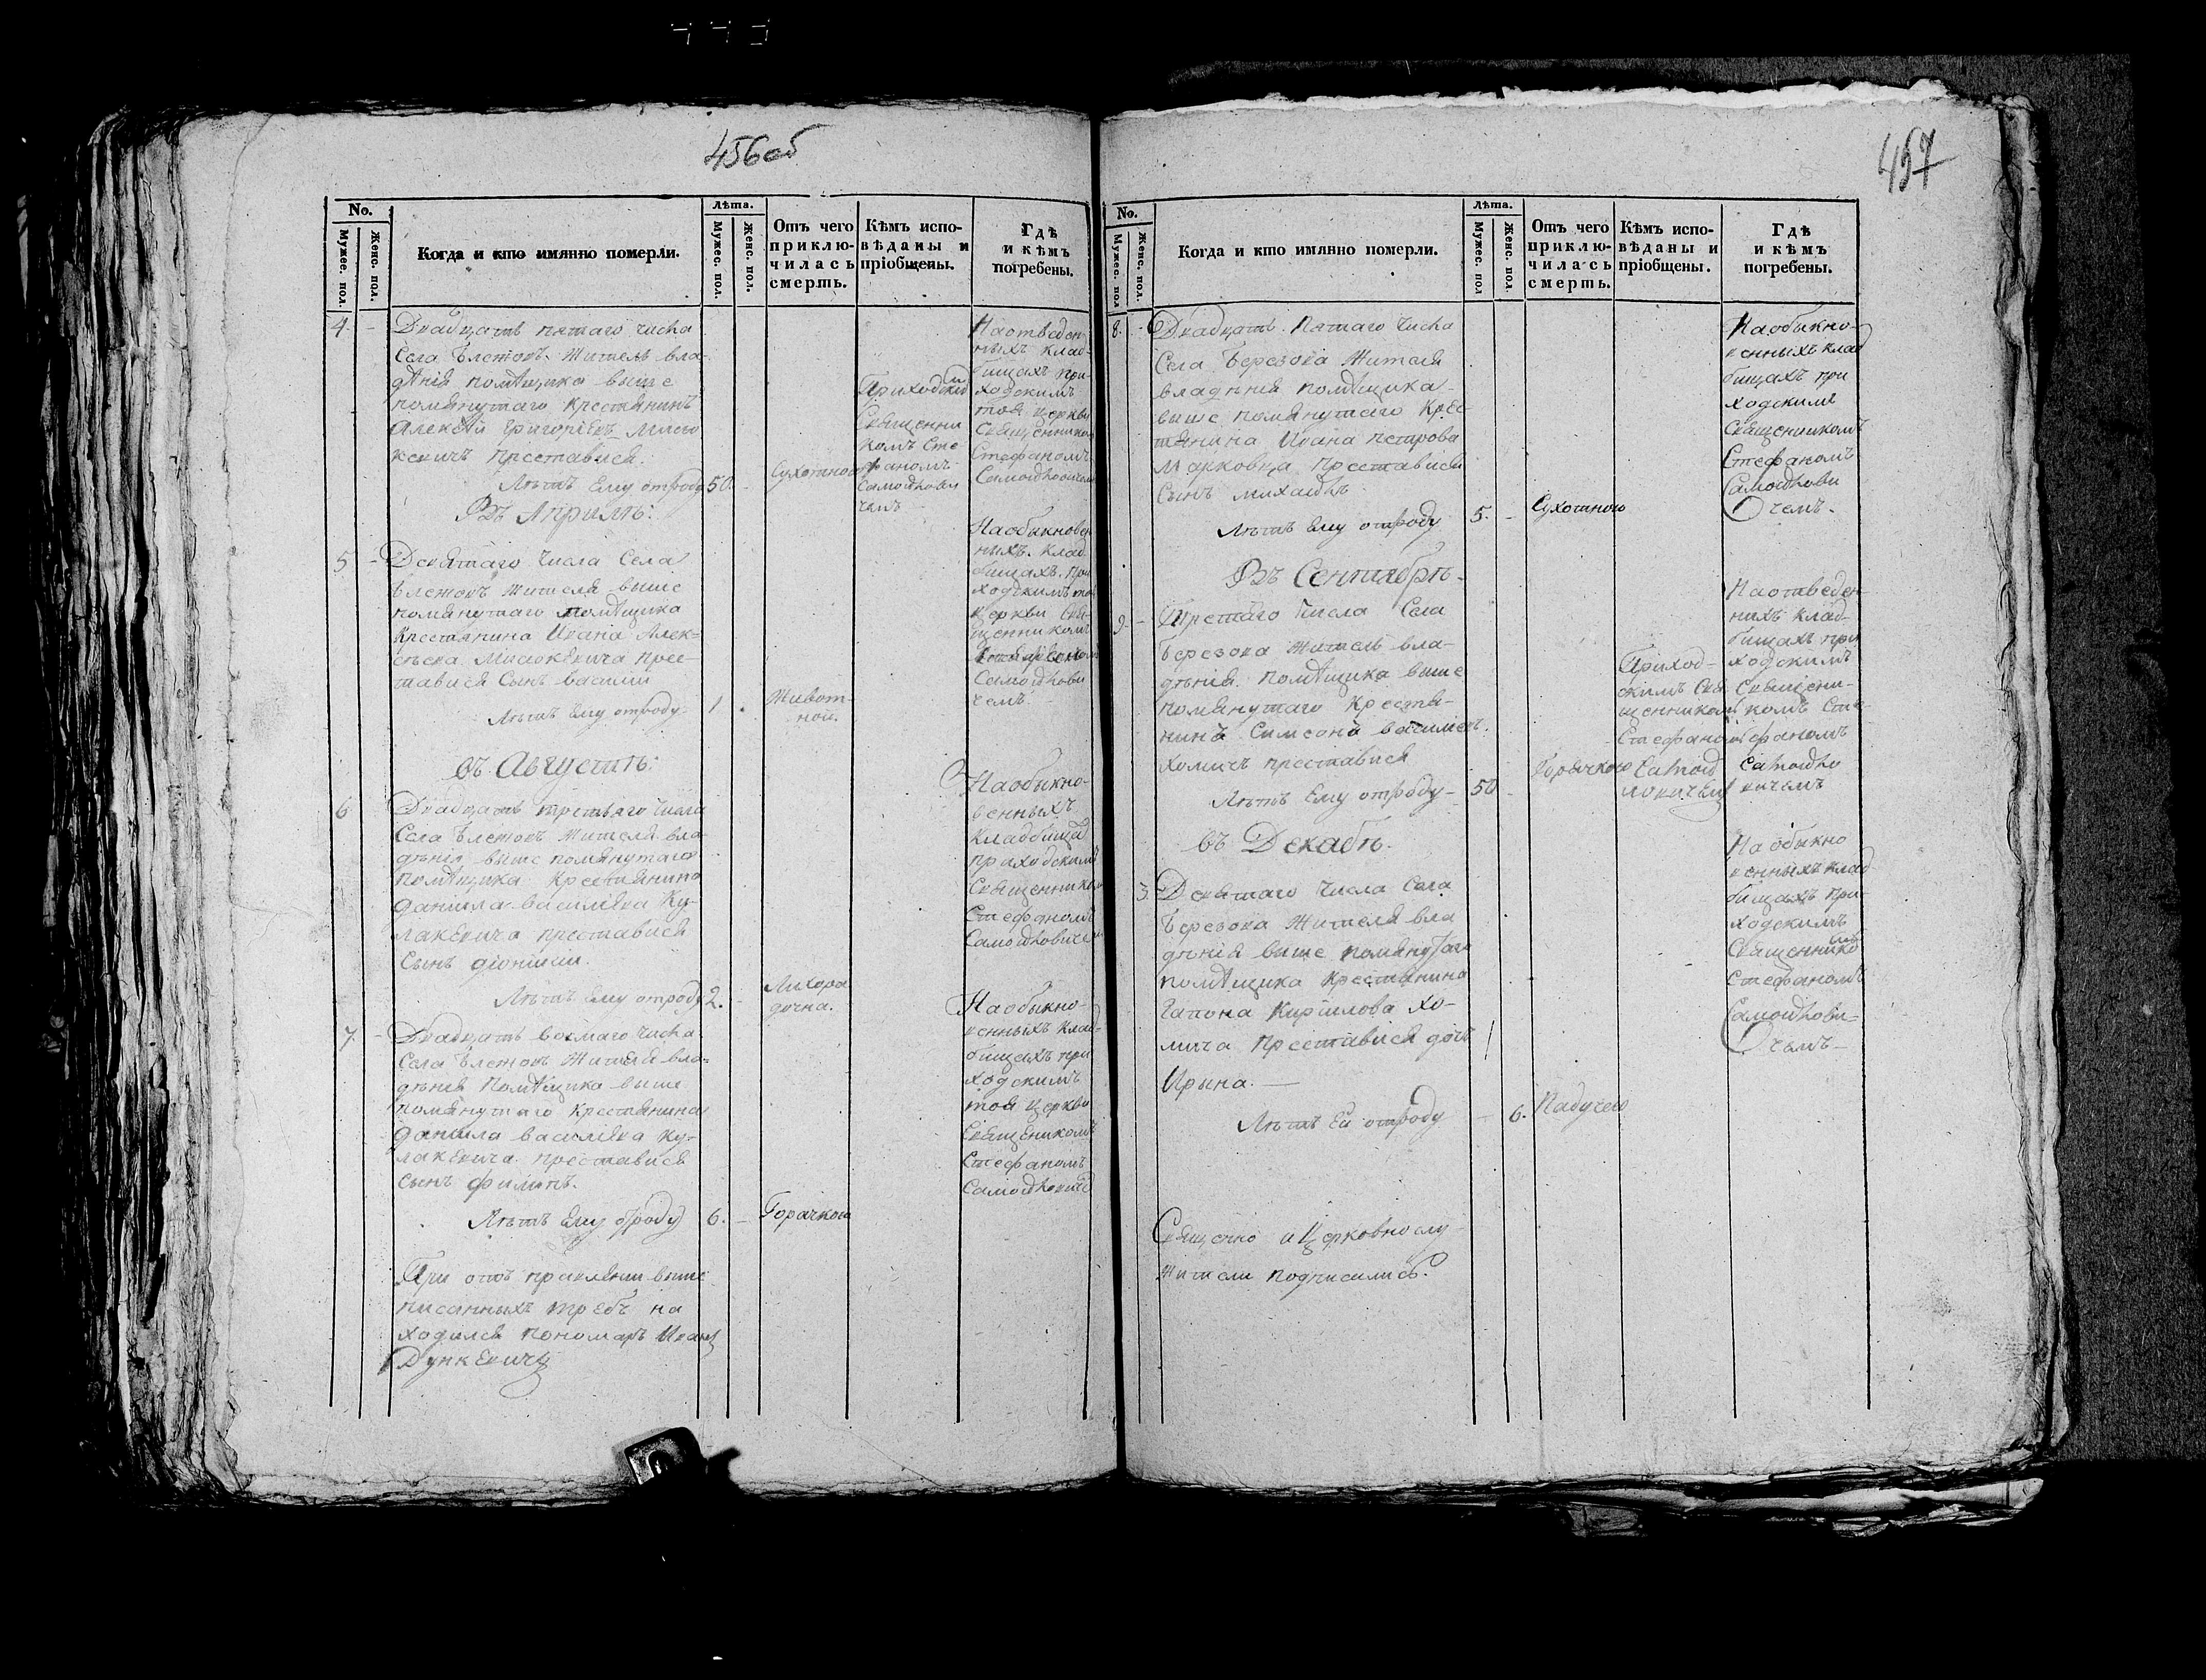 456об
No.
Мужес. пол.
Женс. пол.
Когда и кто имянно померли.
Лѣта.
Мужес. пол.
Женс. пол.
Отъ чего приклю-
чилась смерть.
Кѣмъ испо-
вѣданы и
пріобщены.
Гдѣ
и кѣмъ
погребены.
4. -
Двадцать пятаго числа
Села Блетовъ Житель вла-
дѣнія помѣщика выше
помянутаго Крестянинъ
Алексѣй Григоріевъ
преставися.
Лѣтъ Ему отроду 50.
Сухотною
Приходским
Священни
комъ Сте
фаномъ
Самойлови
чемъ
На отведен-
ныхъ клад-
бищахъ при-
ходскимъ
тоя церкви
Священником
Стефаномъ
Самойловичем
Въ Априлѣ:
5 -
Девятаго Числа Села
Жителя выше
помянутаго помѣщика
Крестянина Ивана Алек-
сѣева прес-
тавися Сынъ василий
Лѣтъ Ему отроду 1
Живот-
ной.
На обыкновен
ныхъ клад
бищахъ при
ходскимъ тоя
церкви Свя-
щенникомъ
Самойлови
чемъ.
въ Августѣ:
6
Двадцать третьяго числа
Села Жителя вла-
дѣнія выше помянутаго
помѣщика Крестянина
Данила василіева Ку-
лакевича преставися
Сынъ Діонисии.
Лѣтъ Ему отроду 2.
Лихора
дочна.
На обыкно-
венныхъ
Кладбищах
приходским
Священником
Стефаномъ
Самойловичем
7. -
Двадцать восмаго числа
Села Жителя вла-
дѣнія Помѣщика выше
помянутаго Крестянина
Данила василіева Ку-
лакевича преставися
Сынъ филипъ.
Лѣтъ Ему отроду 6. -
Горачкою
На обыкно-
венныхъ клад-
бищахъ при
ходскимъ
тоя церкви
Священикомъ
Стефаномъ
При отъ правленіи выше
писанныхъ требъ на
ходился пономаръ Иванъ
Дункевичъ
457
No.
Мужес. пол
Женс. пол.
Когда и кто имянно померли.
Лѣта.
Мужес. пол
Женс. пол.
Отъ чего
приклю-
чилась
смерть.
Кѣмъ испо-
вѣданы и
пріобщены.
Гдѣ
и кѣмъ
погребены.
8. -
Двадцать Пятаго Числа
Села Березова Жителя
владѣнія помѣщика
выше помянутаго Крес
тянина Ивана петрова
Марковца преставися
Сынъ михаилъ
Лѣтъ Ему отроду 5. -
Сухотною
На обыкно-
венныхъ клад
бищахъ при
ходскимъ
Священникомъ
Стефаномъ
Самойлови
чемъ.
Въ Сентябрѣ.
9. -
Третяго Числа Села
Березова Житель вла-
дѣнія помѣщика выше
помянутаго Крестя-
нинъ Симеонъ василіевъ
Хомичъ преставися
Лѣтъ Ему отроду - 50 -
Горячкою
Приход-
скимъ Свя
щенникомъ
Стефаномъ
Самой
ловичемъ
На отведен-
ныхъ клад-
бищахъ при
ходскимъ
Священи-
комъ Сте-
фаномъ
Самойло
вичемъ
въ Декабѣ.
3.
Девятаго Числа Села
Березова Жителя вла
дѣнія выше помянутаго
помѣщика Крестянина
Гапона Кирилова Хо-
мича преставися дочь
Ирына.
Лѣтъ Ей отроду - 6.
Падучею
На обыкно
венныхъ клад
бищахъ при
ходскимъ
Священникомъ
Стефаномъ
Самойлови-
чемъ
Священно и Церковнослу-
жители подписались.